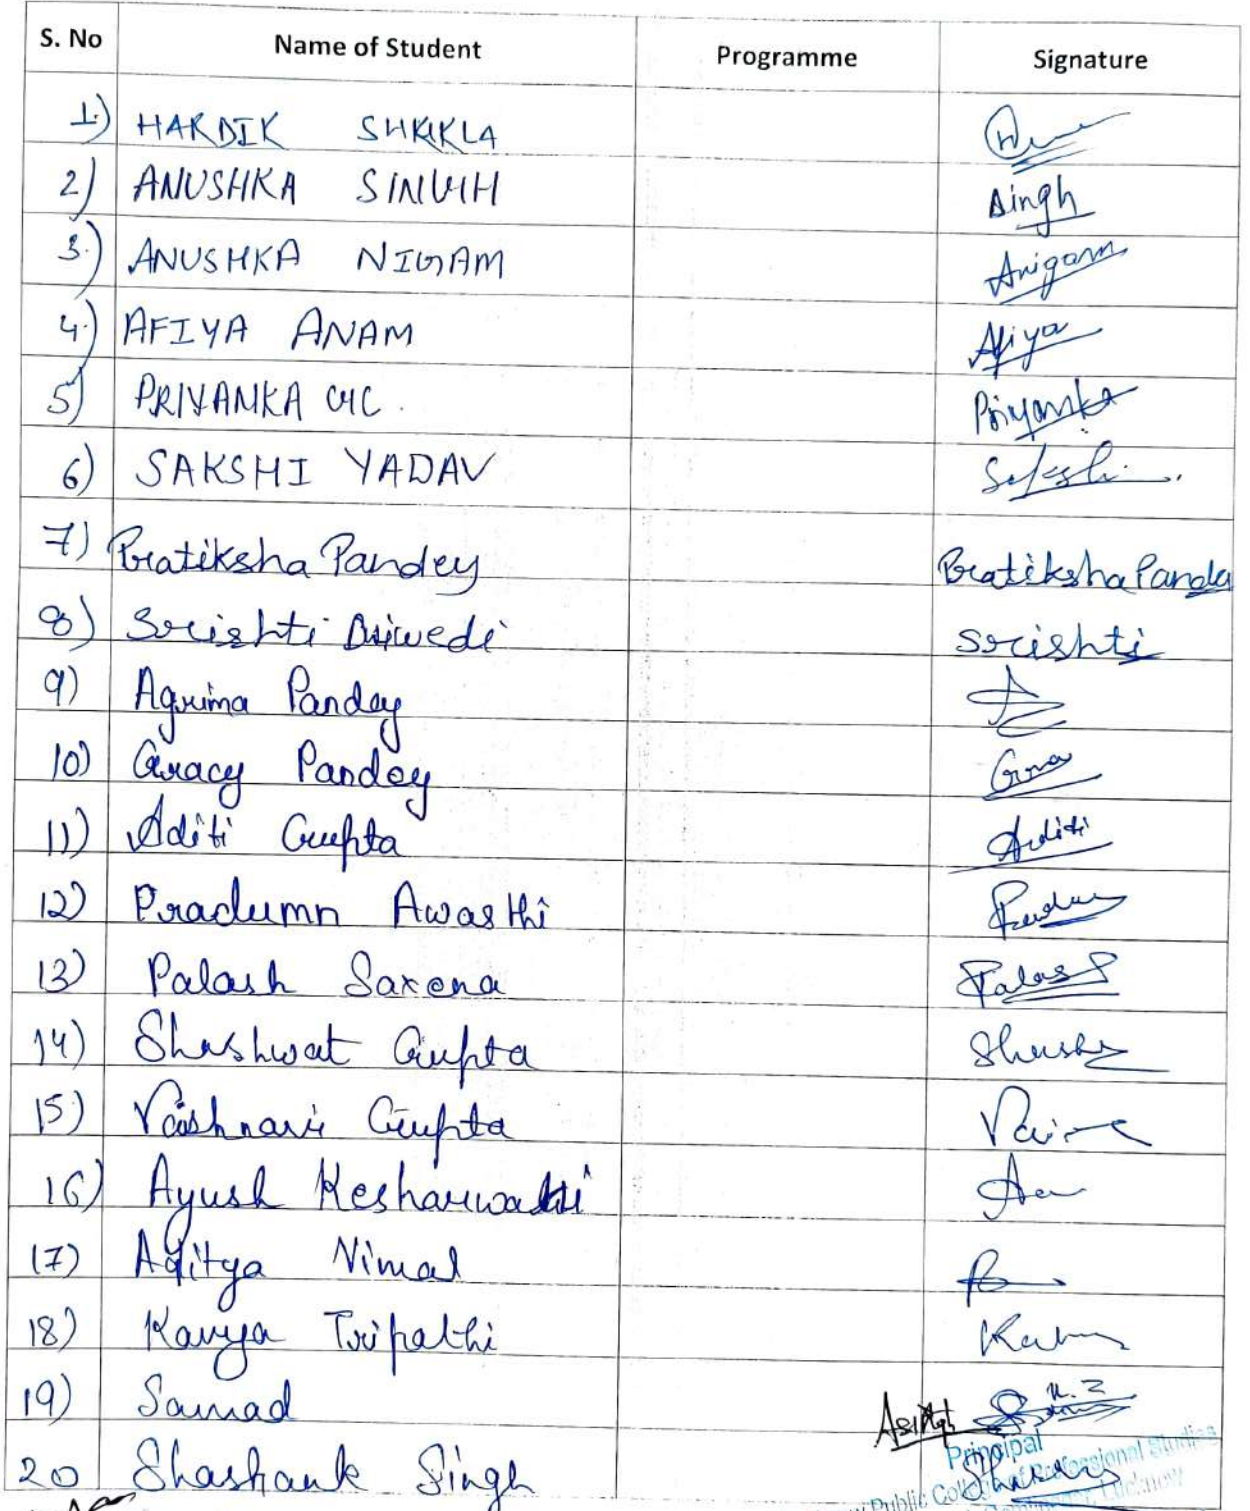 S. No Name of Student Programme Signature
1.) HARDIK SHUKLA
2) ANUSHKA SINGH Singh
3.) ANUSHKA NIGAM Anigam
4.) AFIYA ANAM Afiya
5) PRIYANKA Priyanka
6) SAKSHI YADAV Sakshi
7) Pratiksha Pandey Pratiksha Pande
8) Srishti Dwivedi Srishti
9) Agrima Pandey
10) Gracy Pandey
11) Aditi Gupta Aditi
12) Pradumn Awasthi
13) Palash Saxena Palash
14) Shashwat Gupta
15) Vaishnavi Gupta
16) Ayush Kesharwani
17) Aditya Nirmal
18) Kavya Tripathi
19) Samad
Principal
20 Shashank Singh
Public College of Professional Studies
Lucknow